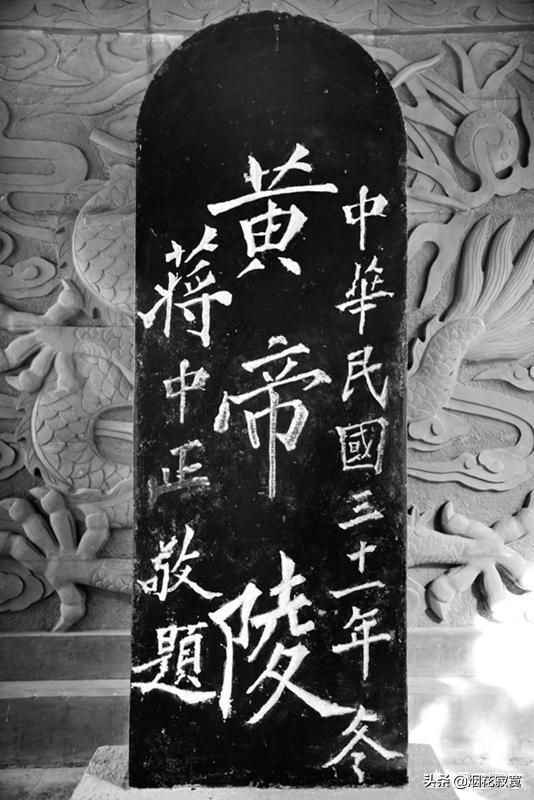 中華民國三十一年冬
黃帝陵
蔣中正敬題
头条 @烟花寂寞